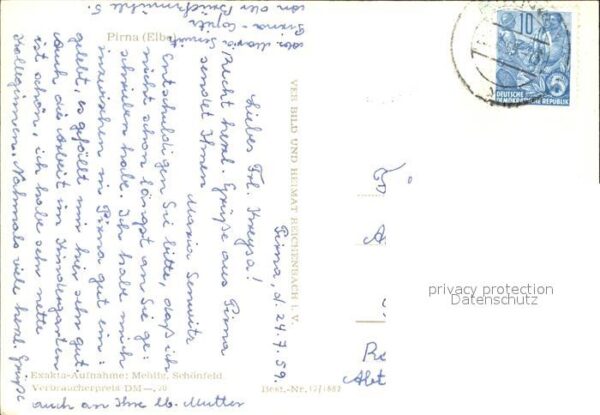 Pirna, d. 24.7.59.
Liebes Frl. Kreysa!
Recht herzl. Grüße aus Pirna
sendet Ihnen
Maria
Entschuldigen Sie bitte, daß ich
nicht schon längst an Sie ge-
schrieben habe. Ich habe mich
inzwischen in Pirna gut ein-
gelebt, es gefällt mir hier sehr gut
auch die Arbeit im Kindergarten
ist schön, ich habe sehr nette
Kolleginnen. Nochmals viele herzl. Grüße
auch an Ihre lb. Mutter
Abs. Maria
Pirna - Copitz
an der Brückmühle 5.
Pirna (Elbe)
VEB BILD UND HEIMAT REICHENBACH i. V.
Exakta-Aufnahme: Mehlig, Schönfeld
Verbraucherpreis DM —,20
Best.-Nr. 12/1887
10
5
DEUTSCHE
DEMOKRATISCHE REPUBLIK
privacy protection
Datenschutz